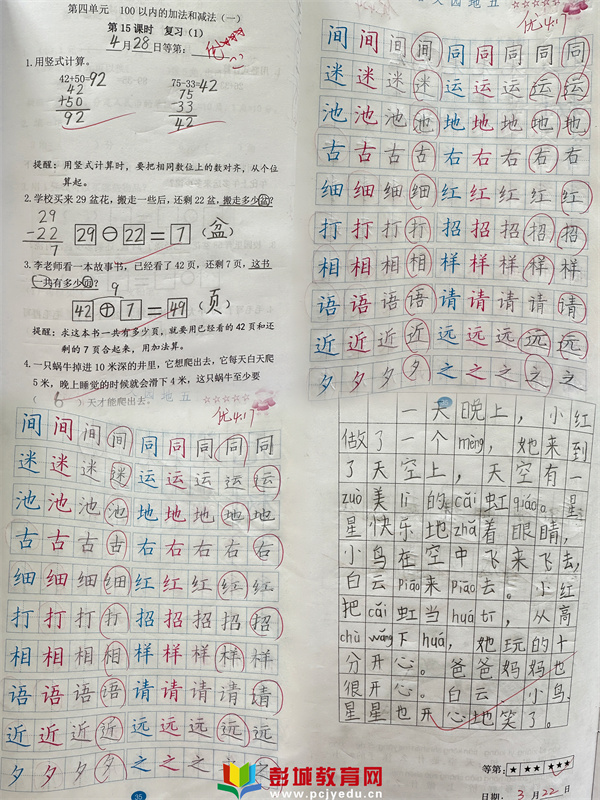 第四单元 100以内的加法和减法（一）
第15课时 复习（1）
4月28日等第： 优
1.用竖式计算。
42+50=92 75-33=42
42 75
+50 -33
92 42
提醒：用竖式计算时，要把相同数位上的数对齐，从个位
算起。
2.学校买来29盆花，搬走一些后，还剩22盆，搬走多少盆？
29
-22
7
29 ⊖ 22 = 7 (盆)
3.李老师看一本故事书，已经看了42页，还剩7页，这书
一共有多少页？
42 ⊕ 7 = 49 (页)
9
提醒：求这本书一共有多少页，就要用已经看的42页和还
剩的7页合起来，用加算。
4.一只蜗牛掉进10米深的井里，它想爬出去，它每天白天爬
5米，晚上睡觉的时候就会滑下4米，这只蜗牛至少要
（ 6 ）天才能爬出去。
地五
优4.17
间间间间同同同同同
迷迷迷迷运运运运运
池池池池地地地地地
古古古古右右右右右
细细细细红红红红红
打打打打招招招招招
相相相相样样样样样
语语语语请请请请请
近近近近远远远远远
夕夕夕夕之之之之之
35
文园地五
优4.17
间间间间同同同同同
迷迷迷迷运运运运运
池池池池地地地地地
古古古古右右右右右
细细细细红红红红红
打打打打招招招招招
相相相相样样样样样
语语语语请请请请请
近近近近远远远远远
夕夕夕夕之之之之之
一天晚上，小红
做了一个mèng，她来到
了天空上，天空有一
zuò美lì的cǎi虹qiáo。星
星快乐地zhá着眼睛，
小鸟在空中飞来飞去，
白云piāo来piāo去。小红
把cǎi虹当huátī，从高
chù wǎng下huá，她玩的十
分开心。爸爸妈妈也
很开心。白云、小鸟、
星星也开心地笑了。
等第：★ ★★ ★★★
日期：3月22日
彭城教育网
www.pcjyedu.cn